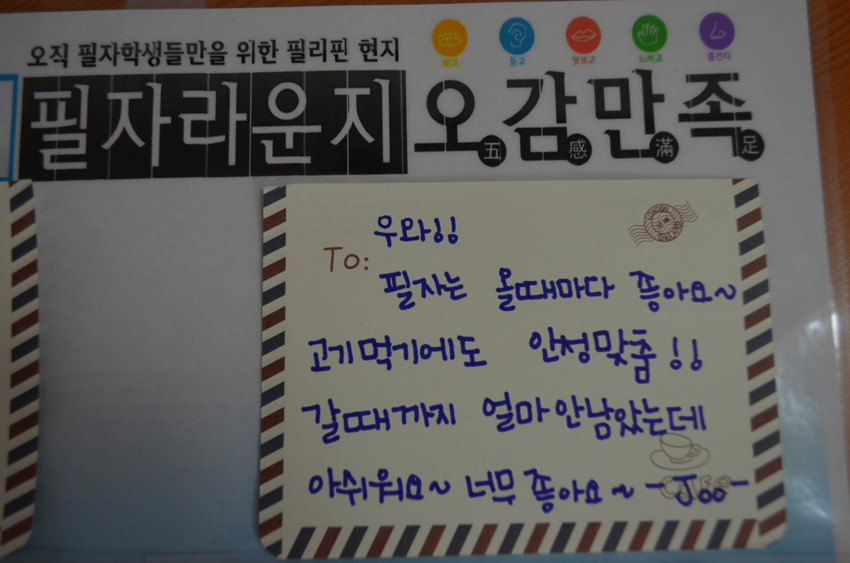 오직 필자학생들만을 위한 필리핀 현지
보고 듣고 맛보고 느끼고 즐긴다
필자라운지 오감만족
五 感 滿 足
To:
우와!!
필자는 올때마다 좋아요~
고기먹기에도 안성맞춤!!
갈때까지 얼마안남았는데
아쉬워요~ 너무 좋아요~ -Joo-